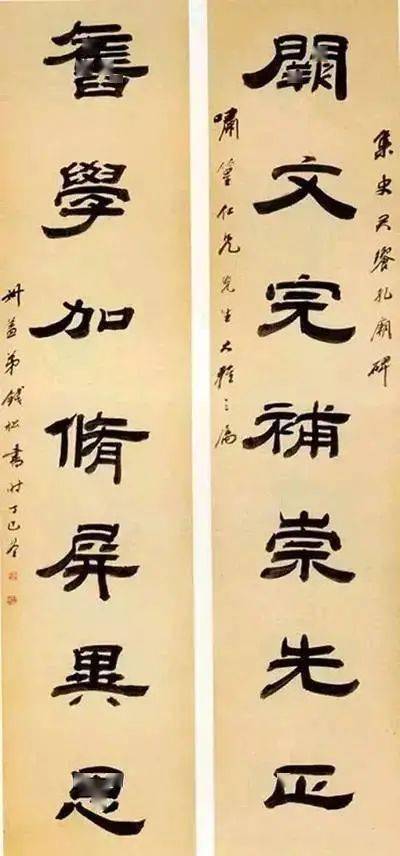 闕文完補崇先正
集史君饗孔廟碑
嘯篁仁兄先生大雅之屬
舊學加脩屏異思
叔蓋弟錢松書時丁巳